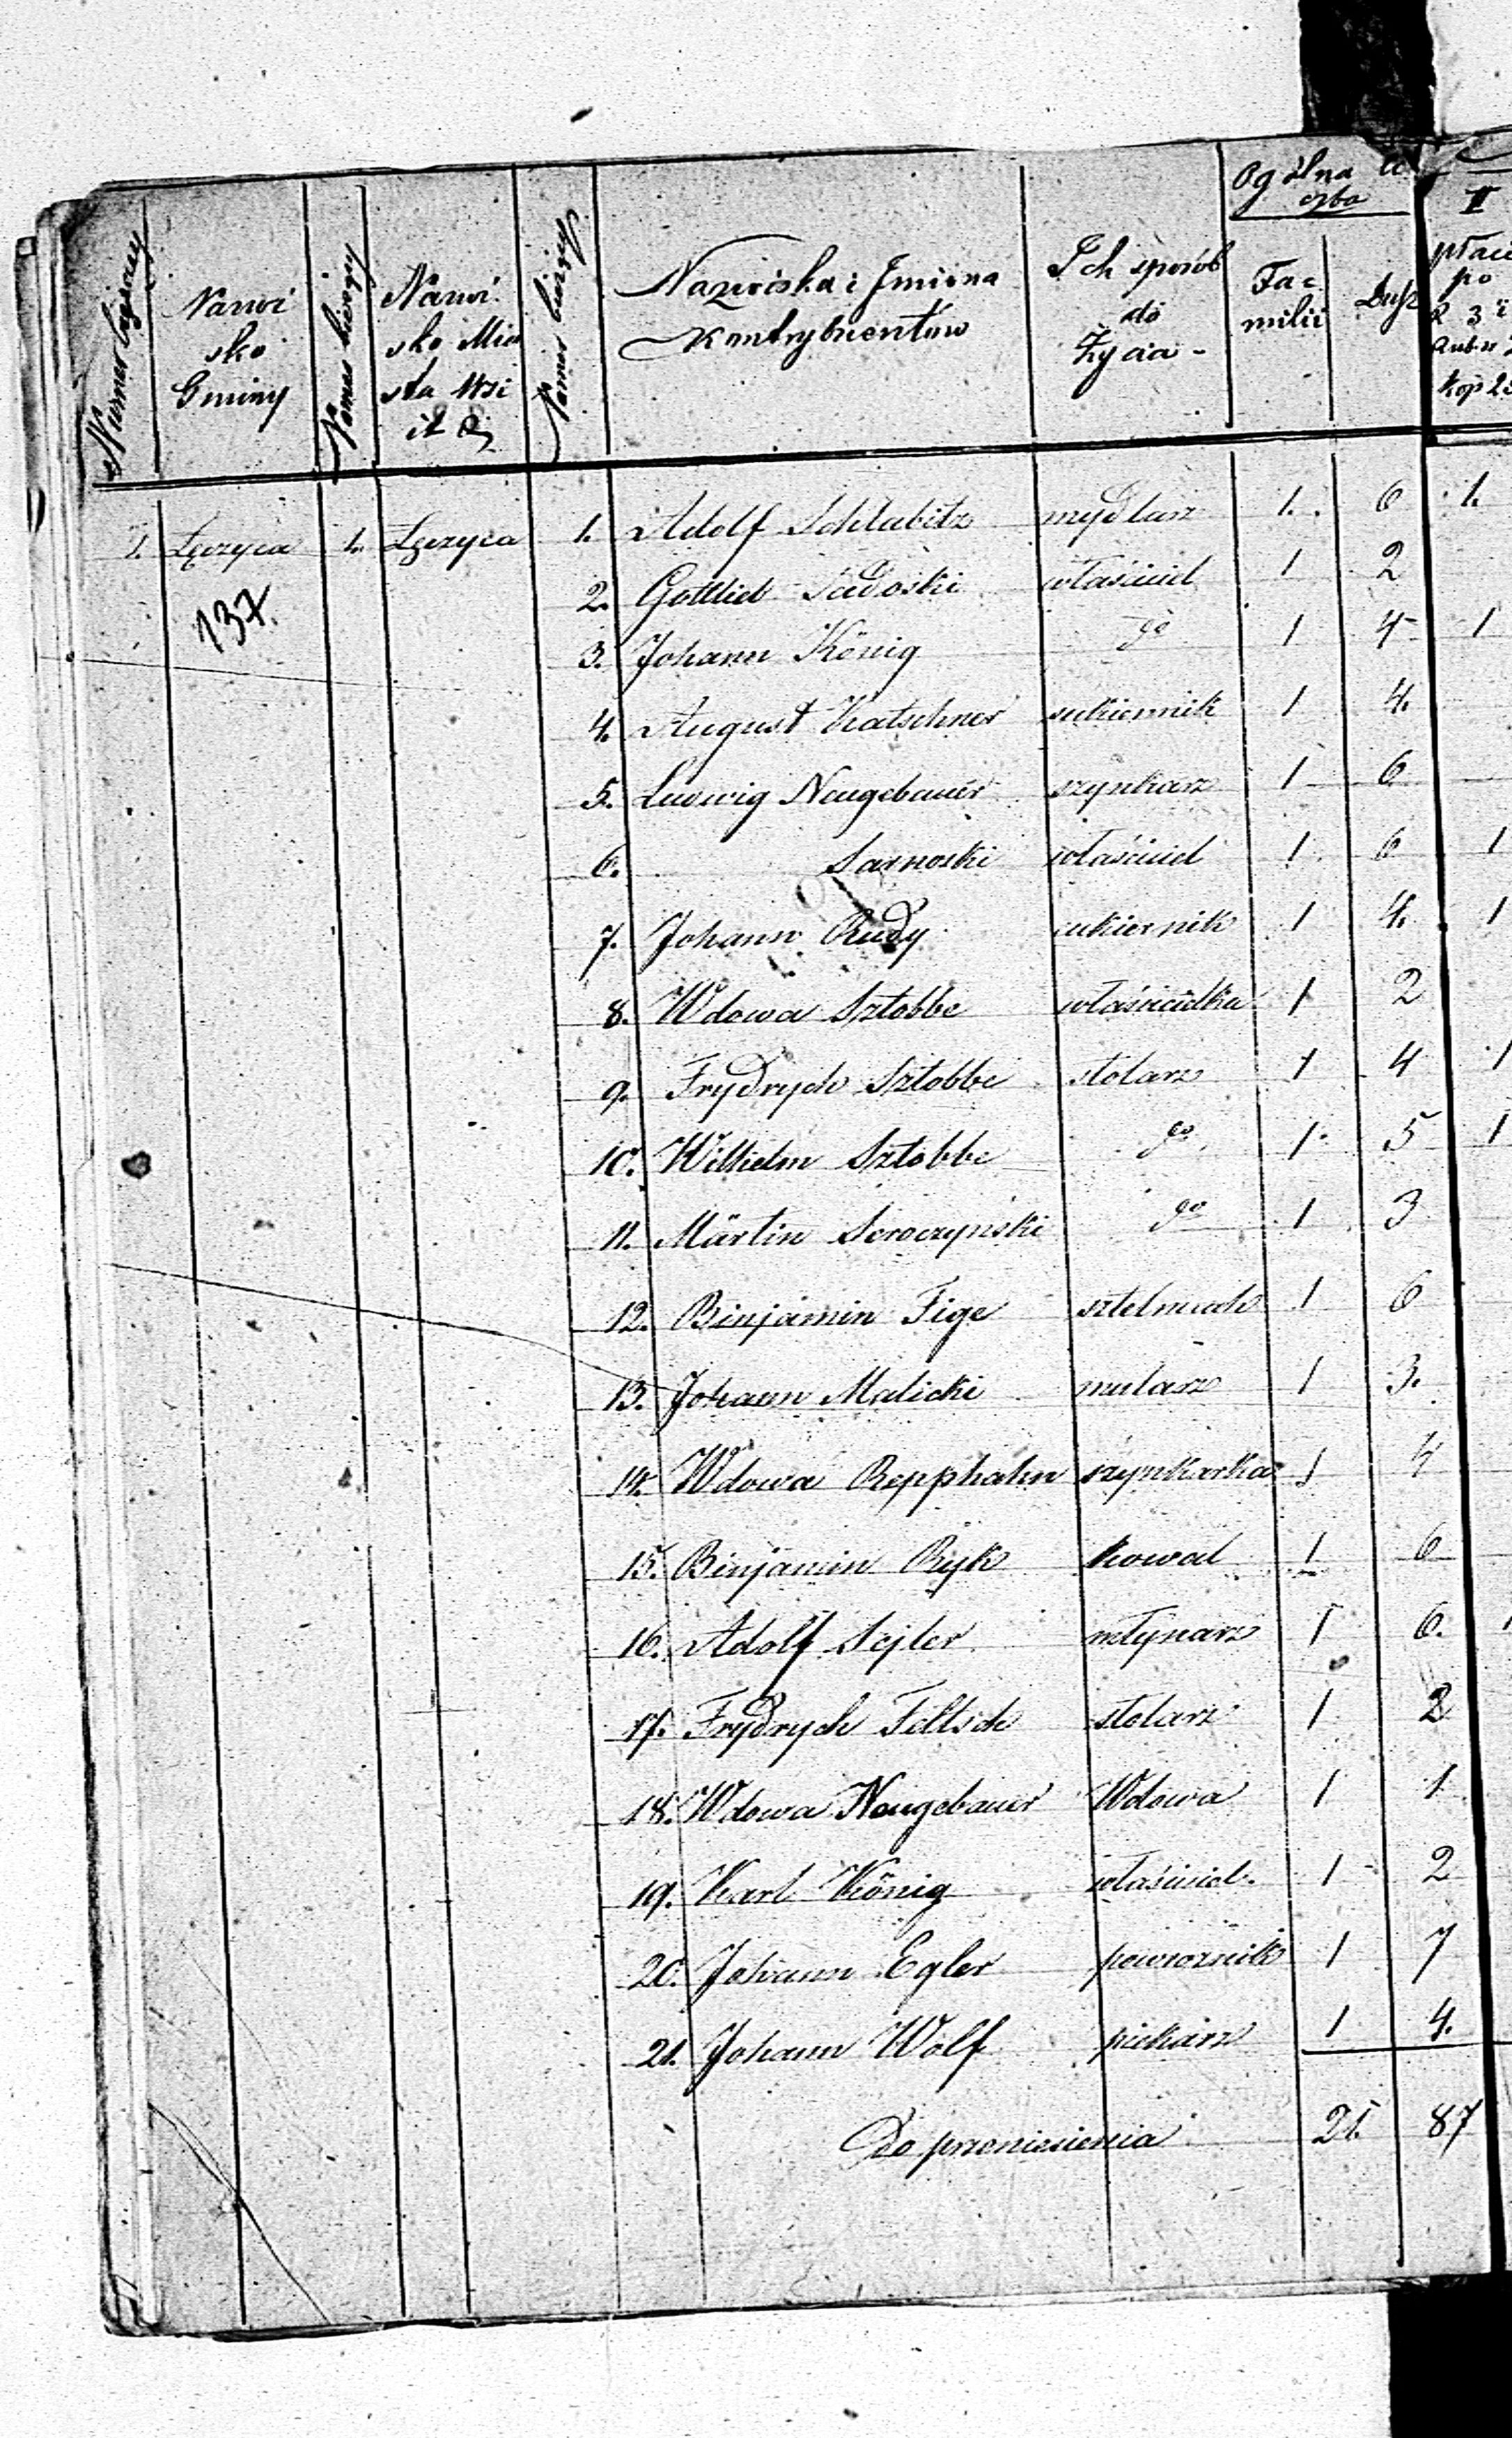 Numer bieżący
Nazwi
sko
Gminy
Numer bieżący
Nazwi
sko Mia
sta Wsi
it d
Numer bieżący
Nazwiska i Jmiona
Kontrybuentów
Ich sposób
do
Życia -
Ogólna li
czba
Fa=
milii
Dusz
II
płaci
po
R 3
kop 2
1. Łęczyca 1. Łęczyca 1. Adolf Schlabitz mydlarz 1. 6 1.
137.
2. Gottlieb Sadoski właściciel 1 2
3. Johann König do 1 4 1
4. August Katschner sukiennik 1 4.
5. Ludwig Neugebauer szynkarz 1 6
6. Sarnoski właściciel 1 6 1
7. Johann Rudy cukiernik 1 4. 1
8. Wdowa Sztobbe właścicielka 1 2
9. Frydrych Sztobbe stolarz 1 4 1
10. Wilhelm Sztobbe do 1 5 1
11. Märtin Soroczynski do 1 3
12. Binjamin Fige sztelmach 1 6
13. Johann Malicki mularz 1 3.
14. Wdowa Repphahn szynkarka 1 4
15. Binjamin Ryk kowal 1 6
16. Adolf Sejler młynarz 1 6.
17. Frydrych Filtsch stolarz 1 2
18. Wdowa Neugebauer Wdowa 1 1
19. Karl König właściciel. 1 2
20. Johann Egler powroznik 1 7
21. Johann Wolf piekarz 1 4.
Do przeniesienia 21. 87